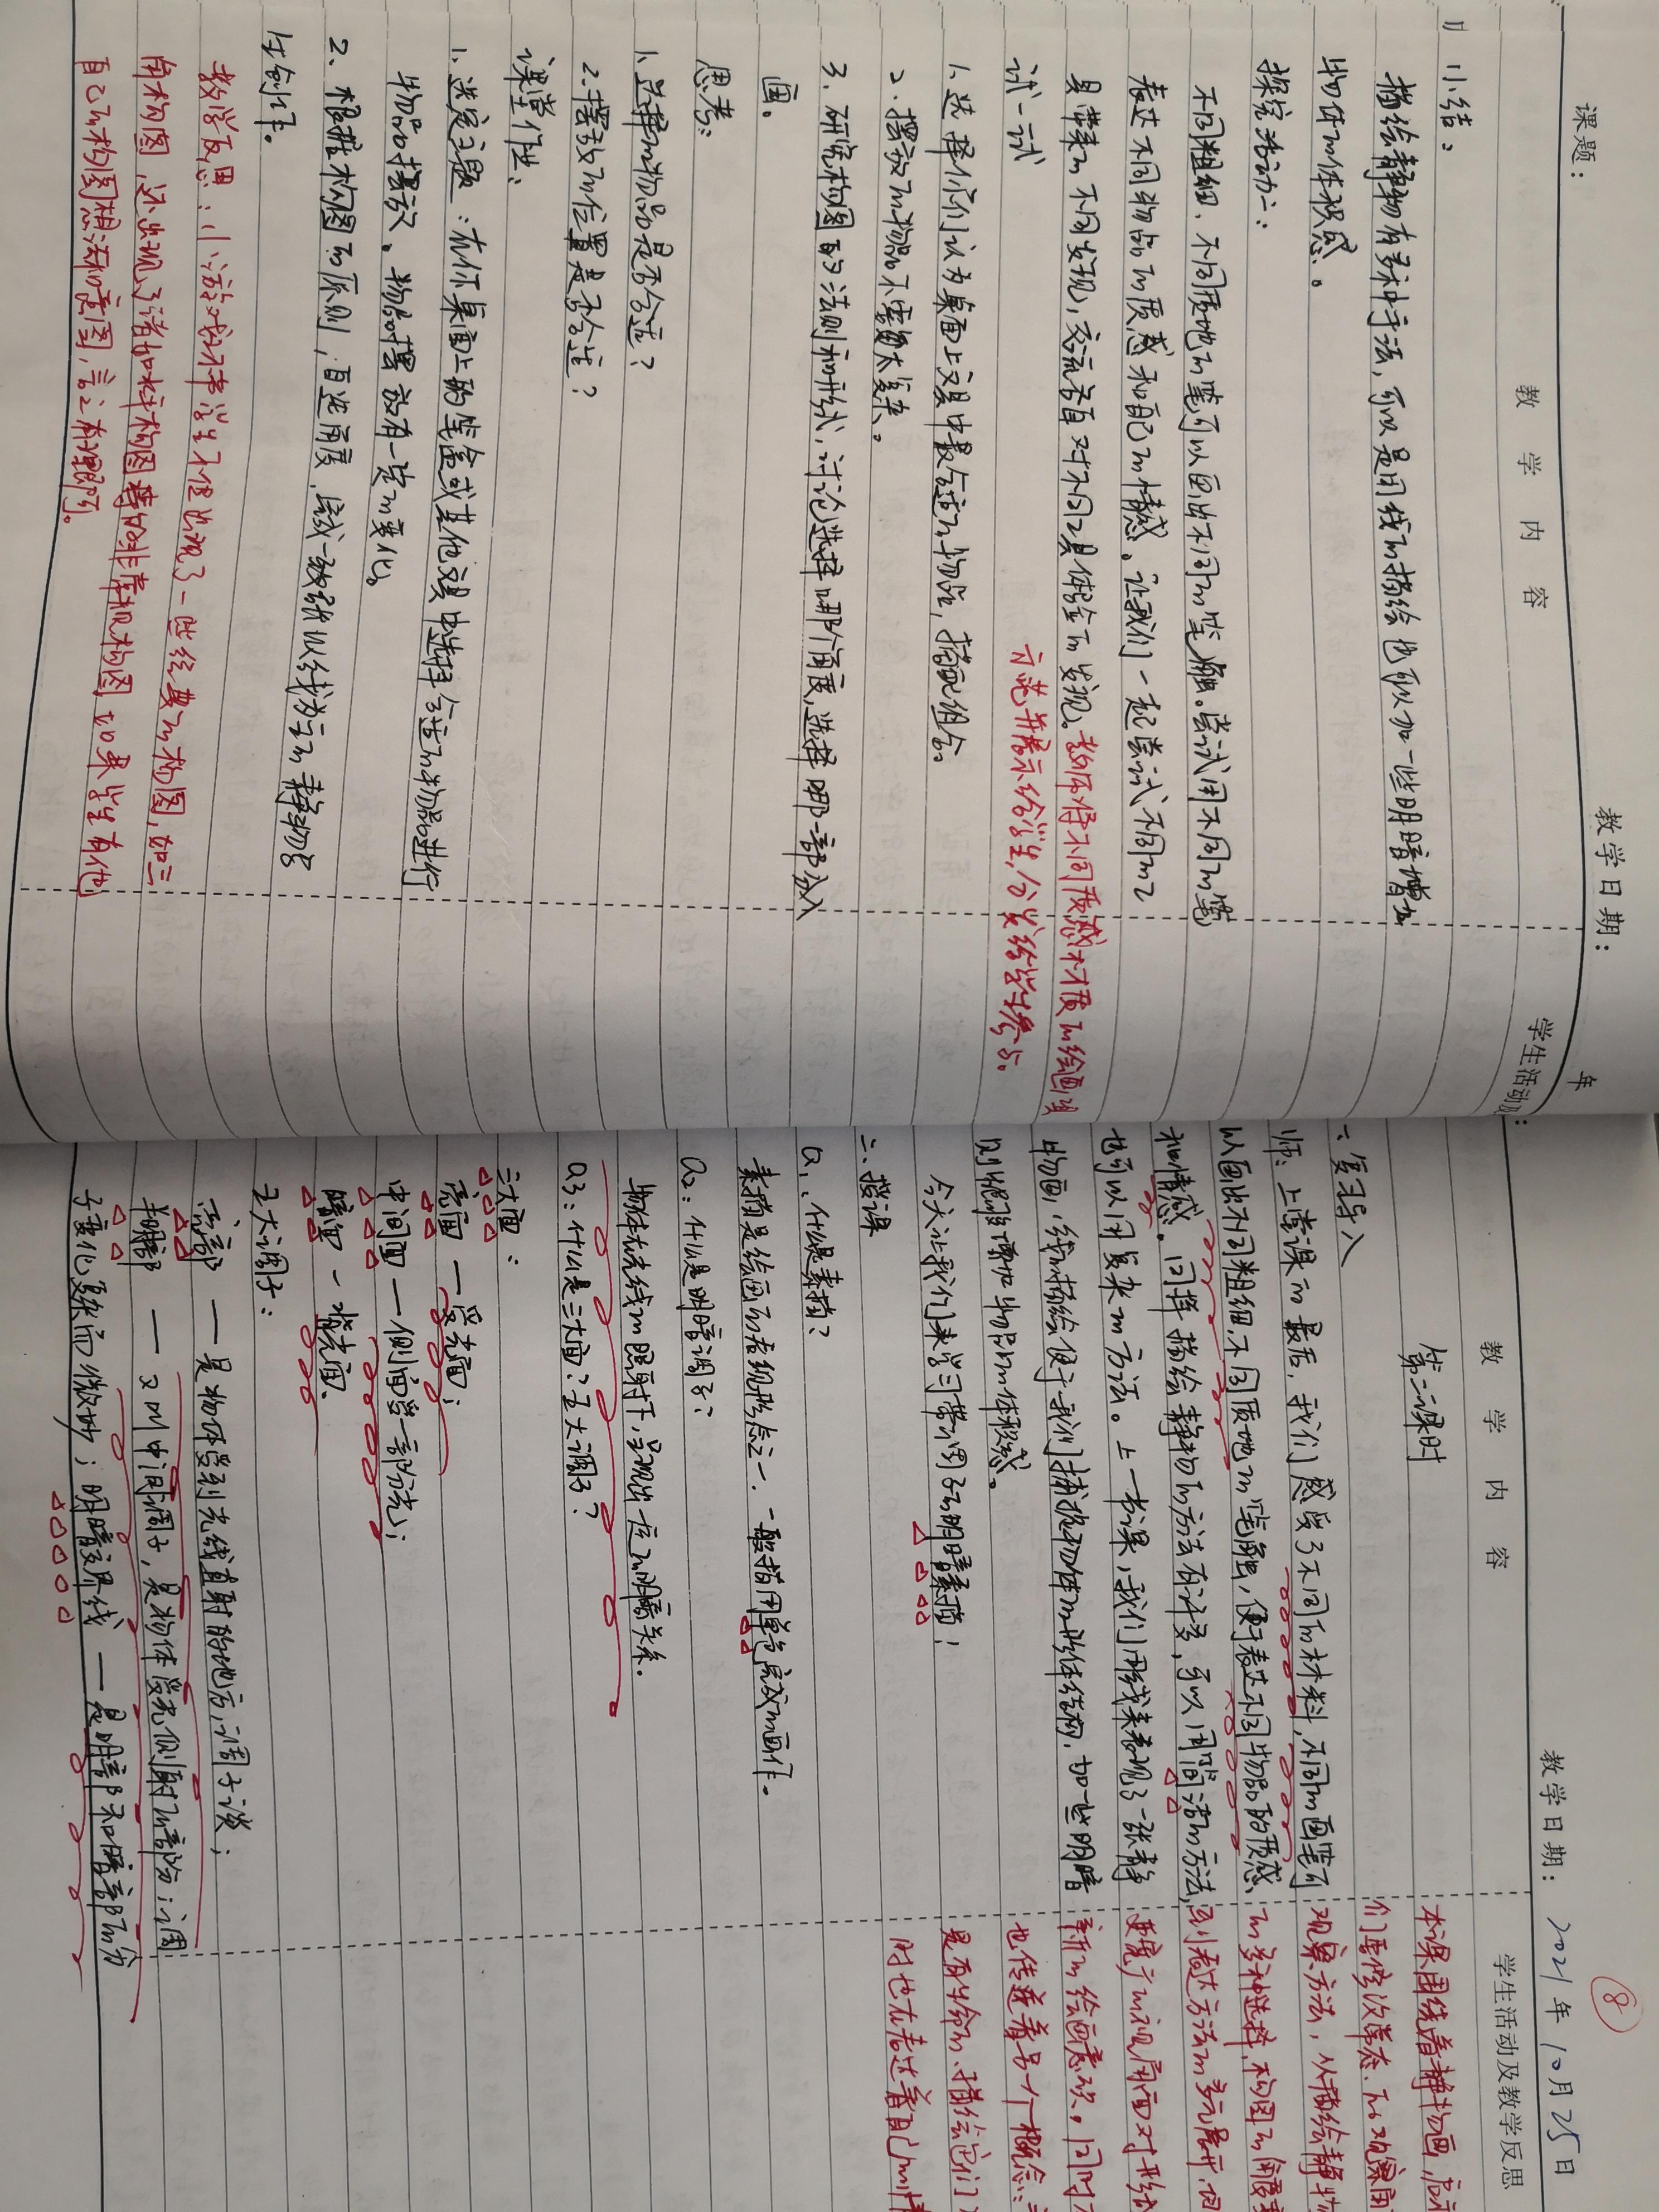 课题：
教学日期：
年
教学内容
学生活动及
小结：
描绘静物有多种手法，可以是用线的描绘也可以加一些明暗增加
物体的体积感。
探究活动二：
不同粗细、不同质地的笔可以画出不同的笔触。尝试用不同的笔
表达不同物品的质感和自己的情感。让我们一起尝试不同的工
具带来的不同发现，交流各自对不同工具体验的发现。教师将不同质感材质的绘画
试一试
示范并展示给学生，分发给学生参与。
1、选择你们认为桌面上文具中最合适的物品，搭配组合。
2、摆放的物品不需要太复杂。
3、研究构图的法则和形式，讨论选择哪个角度，选择哪一部分入
画。
思考：
1、选择的物品是否合适？
2、摆放的位置是否合适？
课堂作业：
1、选定主题：在你桌面上的笔盒或其他文具中选择合适的物品进行
物品的摆放。物品的摆放有一定的变化。
2、根据构图的原则，自选角度，尝试一张以线为主的静物写
生创作。
教学反思：小游戏环节学生不仅出现了一些经典的构图，如三
角构图，还出现了诸如斜构图等的非常规构图 如果学生有他们
自己的构图想法和意图，言之有理即可。
教学日期：2021年10月25日
⑧
教学内容
学生活动及教学反思
第二课时
一、复习导入
师：上堂课的最后，我们感受了不同的材料，不同的画笔可
以画出不同粗细、不同质地的笔触，便于表达不同物品的质感、
和情感。同样描绘静物的方法有许多，可以用简洁的方法，
也可以用复杂的方法。上一节课，我们用线来表现了一张静
物画，线的描绘便于我们捕捉物体的形体结构，加一些明暗
则能够增加物品的体积感。
今天让我们来学习带调子的明暗素描！
二、授课
Q1、什么是素描？
素描是绘画的表现形式之一，一般指用单色完成的画作。
Q2：什么是明暗调子？
物体在光线的照射下，呈现出一定的明暗关系。
Q3：什么是三大面？五大调子？
三大面：
亮面 — 受光面；
中间面 — 侧面受一部分光；
暗面 — 背光面。
五大调子：
亮部 — 是物体受到光线直射的地方，调子淡；
半明部 — 又叫中间调子，是物体受光侧射的部分；调
子变化复杂而微妙；明暗交界线 — 是明部和暗部的分
本课围绕着静物画，
观察方法，从描绘静物
的多种选择，构图的角度
到表达方法的多元展开，
新的绘画意识。同时
也传递着另一个概念：
是有生命的，描绘它们
时也在表达着自己的情